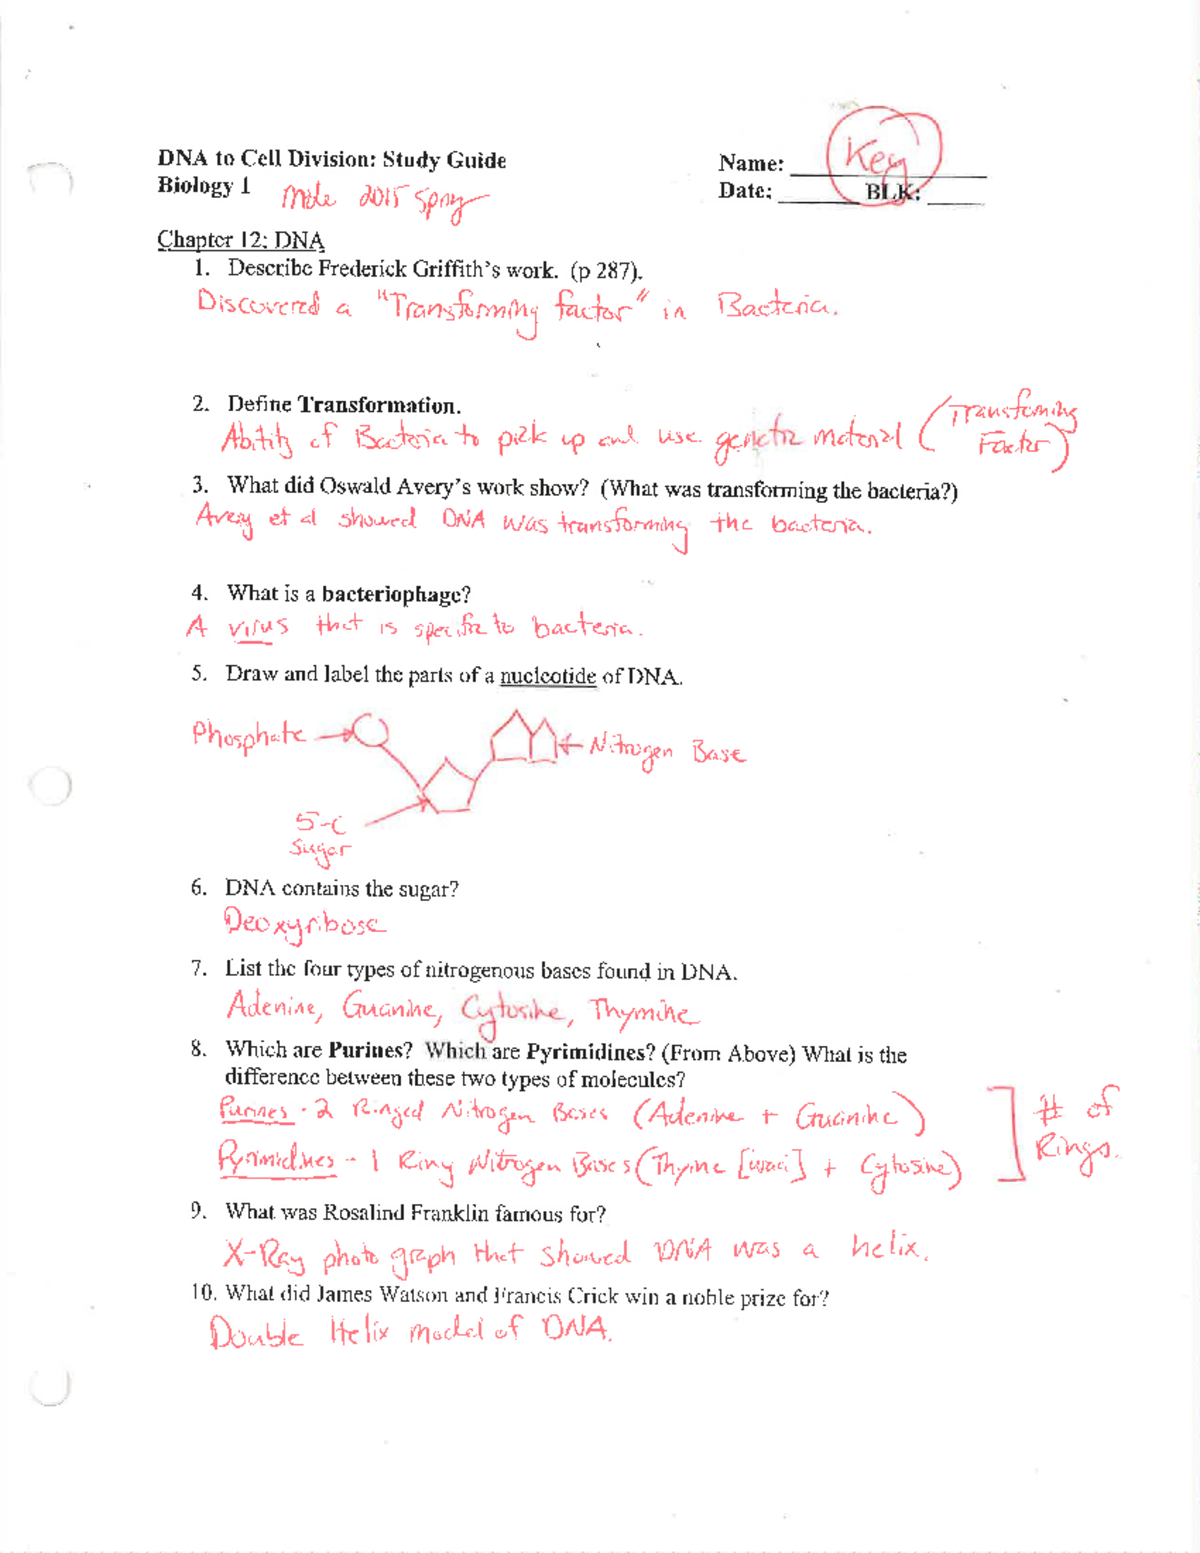 DNA to Cell Division: Study Guide
Name: Key
Biology 1 Mole 2015 Spring
Date: BLK:
Chapter 12: DNA
1. Describe Frederick Griffith's work. (p 287).
Discovered a "Transforming factor" in Bacteria.
2. Define Transformation.
Ability of Bacteria to pick up and use genetic material (Transforming Factor)
3. What did Oswald Avery's work show? (What was transforming the bacteria?)
Avery et al showed DNA was transforming the bacteria.
4. What is a bacteriophage?
A virus that is specific to bacteria.
5. Draw and label the parts of a nucleotide of DNA.
Phosphate
Nitrogen Base
5-C
Sugar
6. DNA contains the sugar?
Deoxyribose
7. List the four types of nitrogenous bases found in DNA.
Adenine, Guanine, Cytosine, Thymine
8. Which are Purines? Which are Pyrimidines? (From Above) What is the
difference between these two types of molecules?
Purines - 2 Ringed Nitrogen Bases (Adenine + Guanine)
# of
Rings.
Pyrimidines - 1 Ring Nitrogen Bases (Thymine [uraci] + Cytosine)
9. What was Rosalind Franklin famous for?
X-Ray photo graph that showed DNA was a helix.
10. What did James Watson and Francis Crick win a noble prize for?
Double Helix model of DNA.